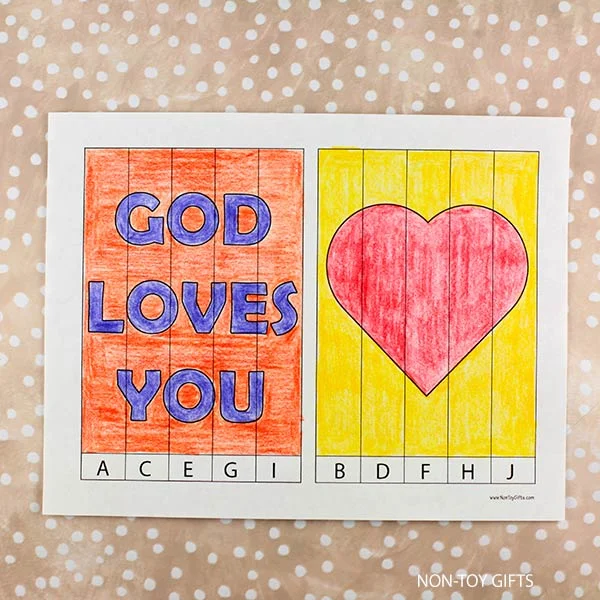 GOD
LOVES
YOU
A C E G I
B D F H J
www.NonToyGifts.com
NON-TOY GIFTS